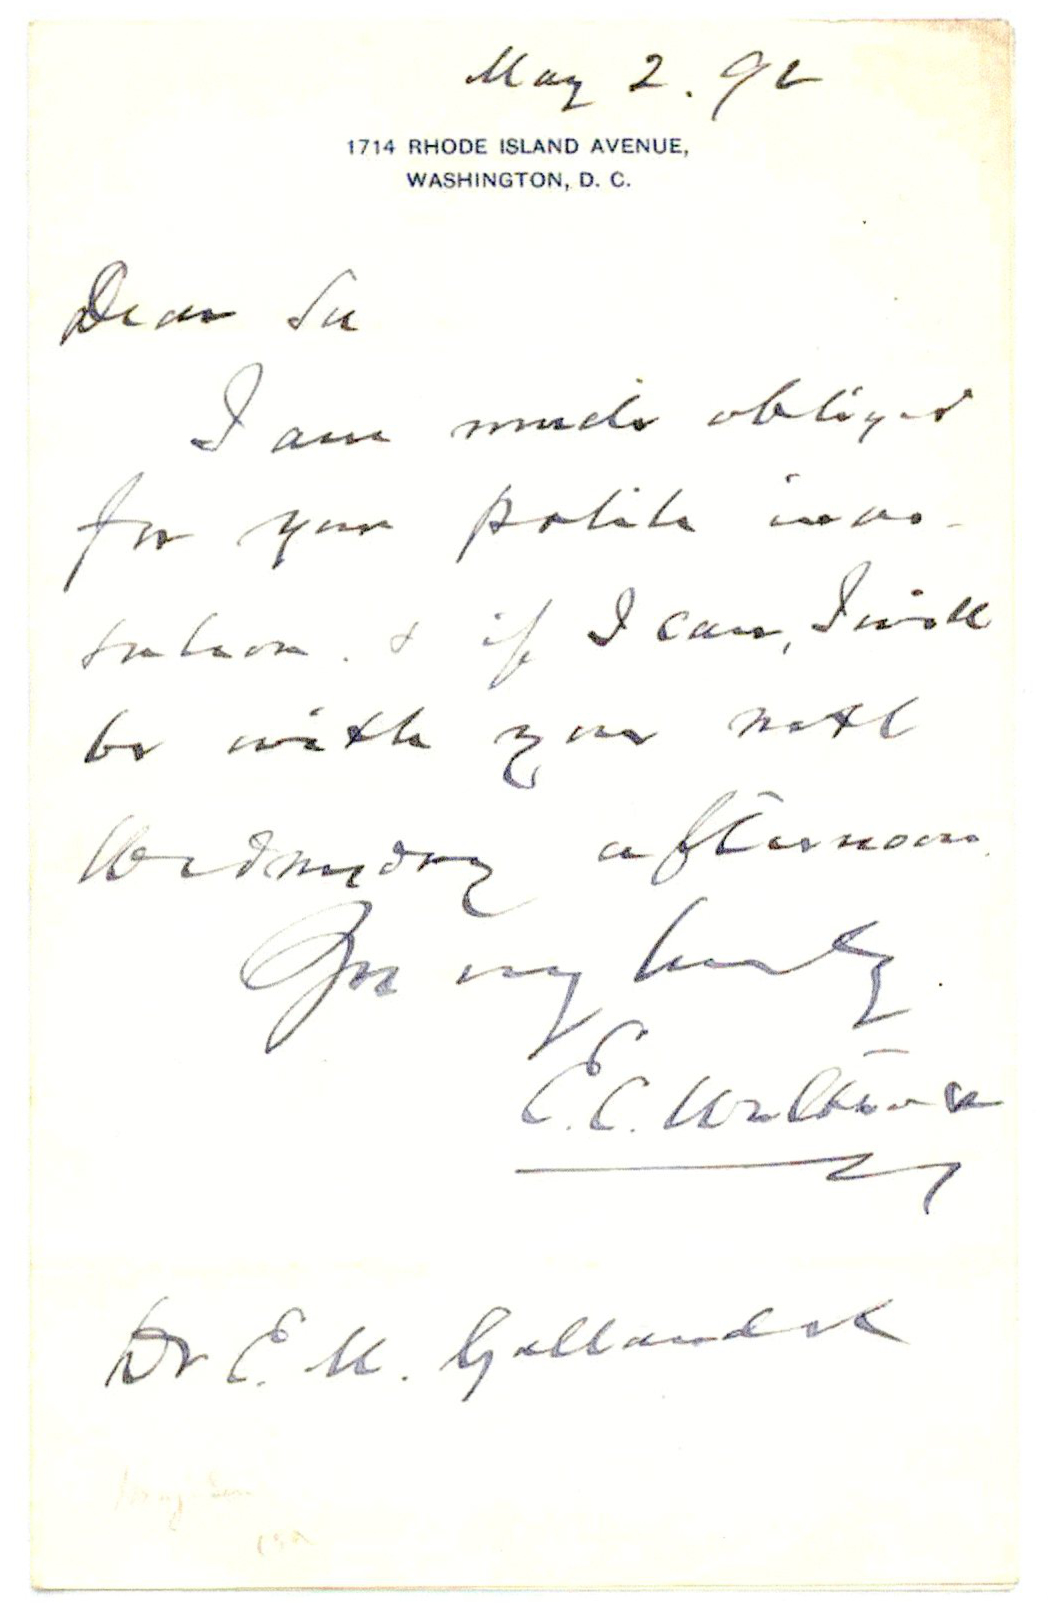 May 2. 92
1714 RHODE ISLAND AVENUE,
WASHINGTON, D. C.
Dear Sir
I am much obliged
for your polite invi-
tation. & if I can, I will
be with you next
Wednesday afternoon.
Yrs very truly
E. C. Walthall
Dr E. M. Gallaudet